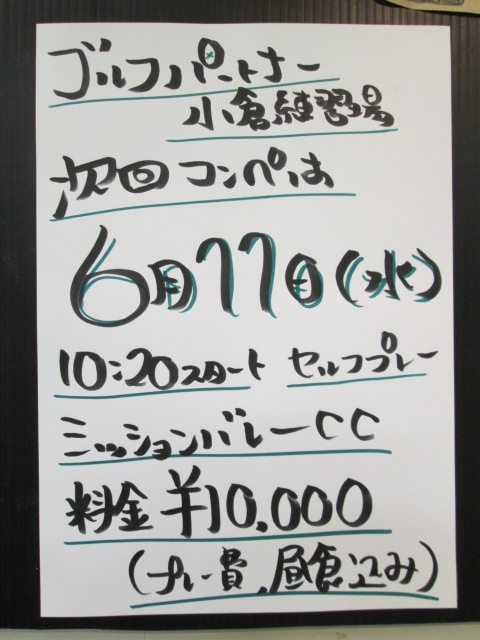 ゴルフパートナー
小倉練習場
次回コンペは
6月11日(水)
10:20スタート セルフプレー
ミッションバレーCC
料金 ¥10,000
(プレー費、昼食込み)